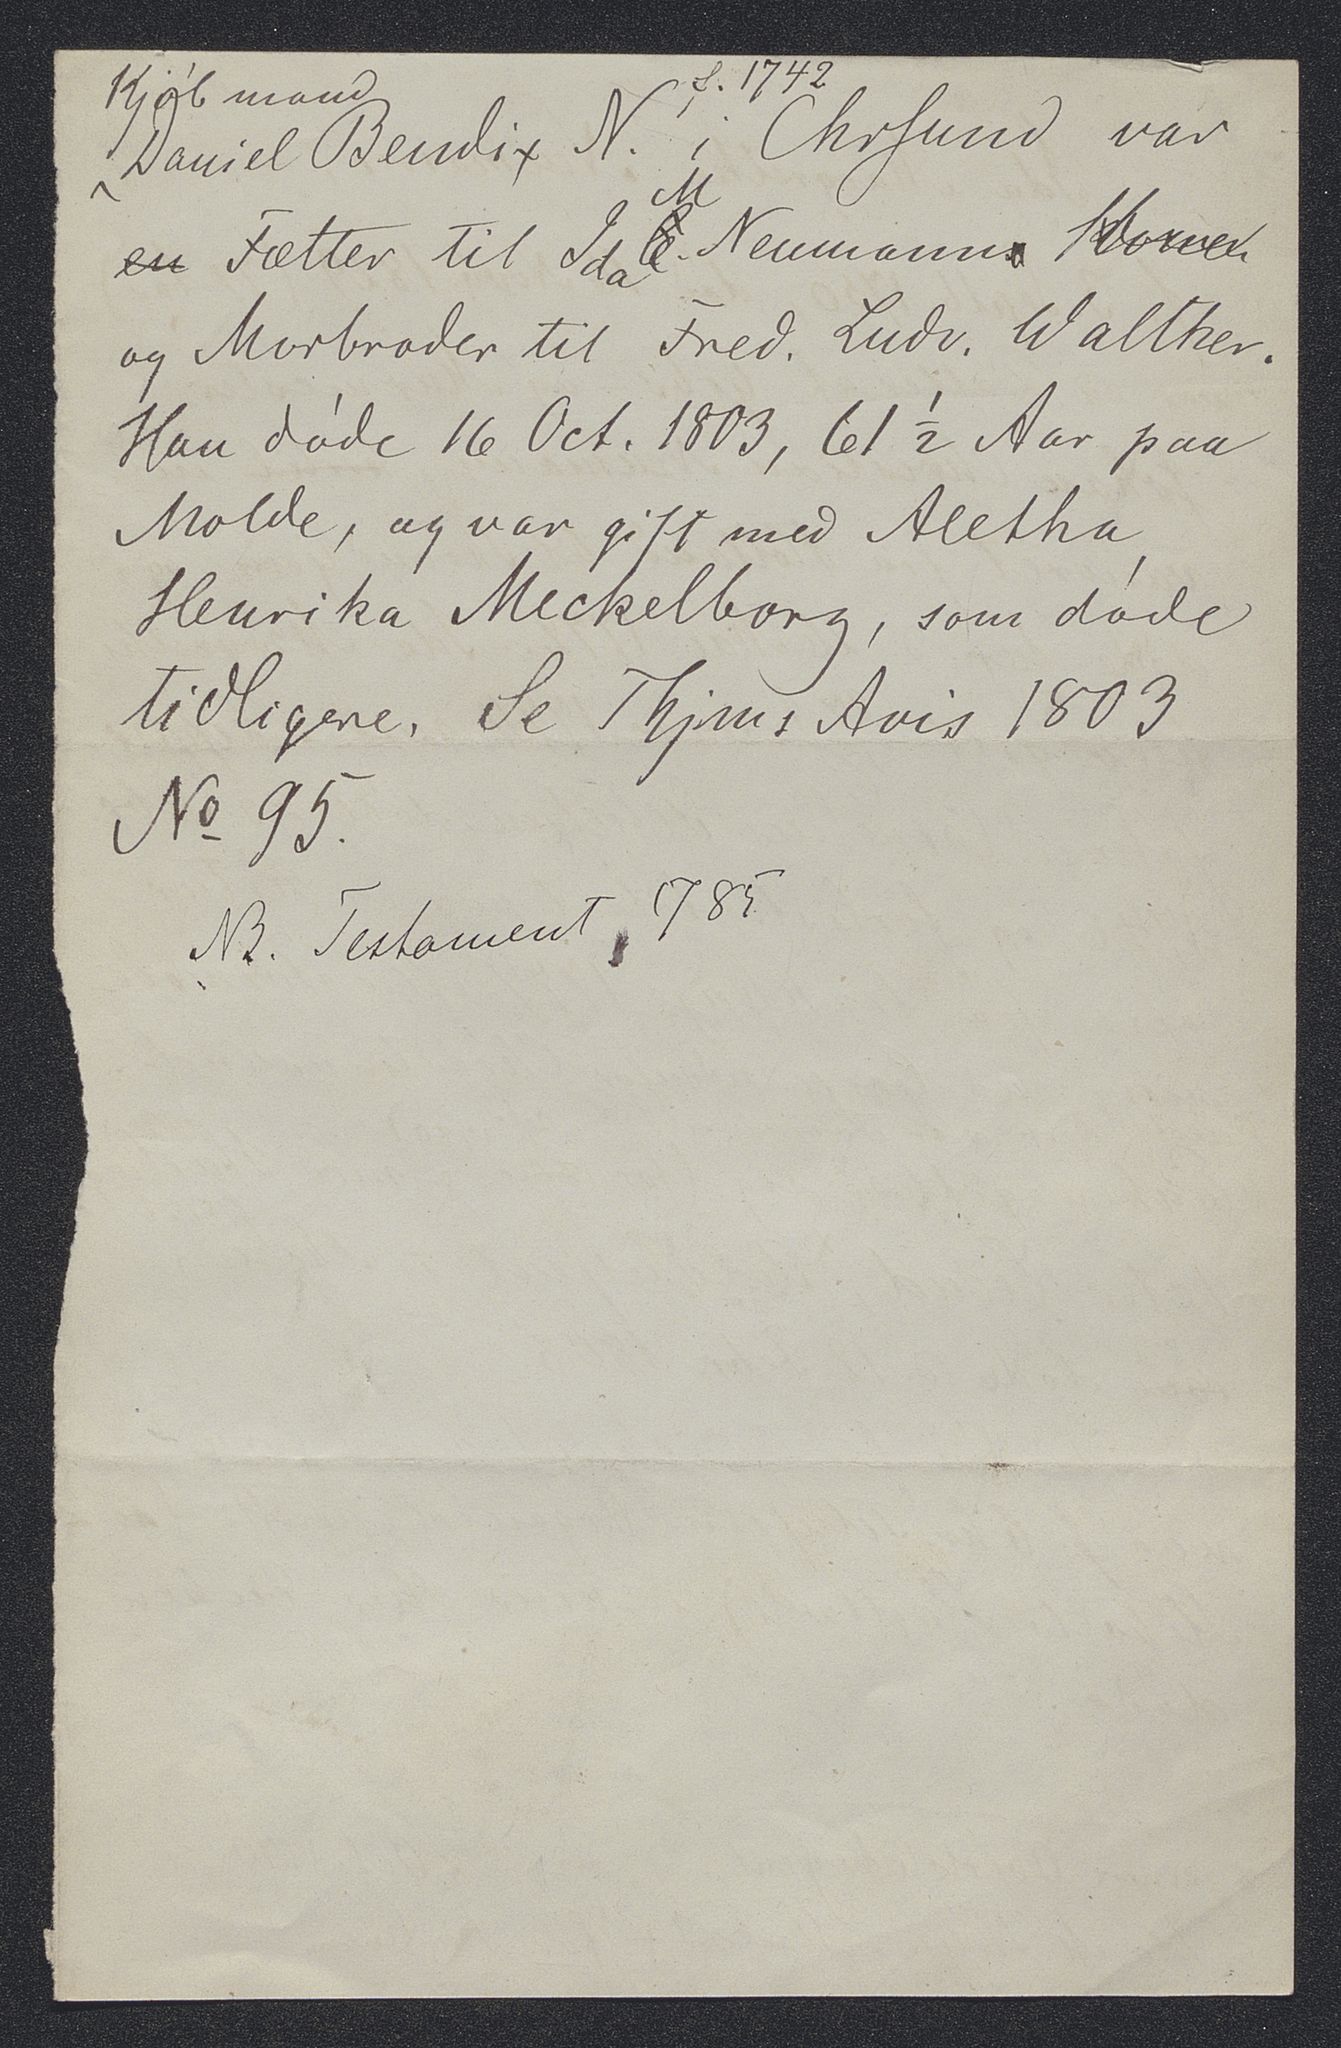 Kjøbmand f. 1742
Daniel Bendix N. i Chrsund var
en Fætter til Ida M. Neumann
og Morbroder til Fred. Ludv. Walther.
Han døde 16 Oct. 1803, 61 1/2 Aar paa
Molde, og var gift med Aletha
Henrika Meckelborg, som døde
tidligere. Se Thjms Avis 1803
No 95.
NB. Testament 1785